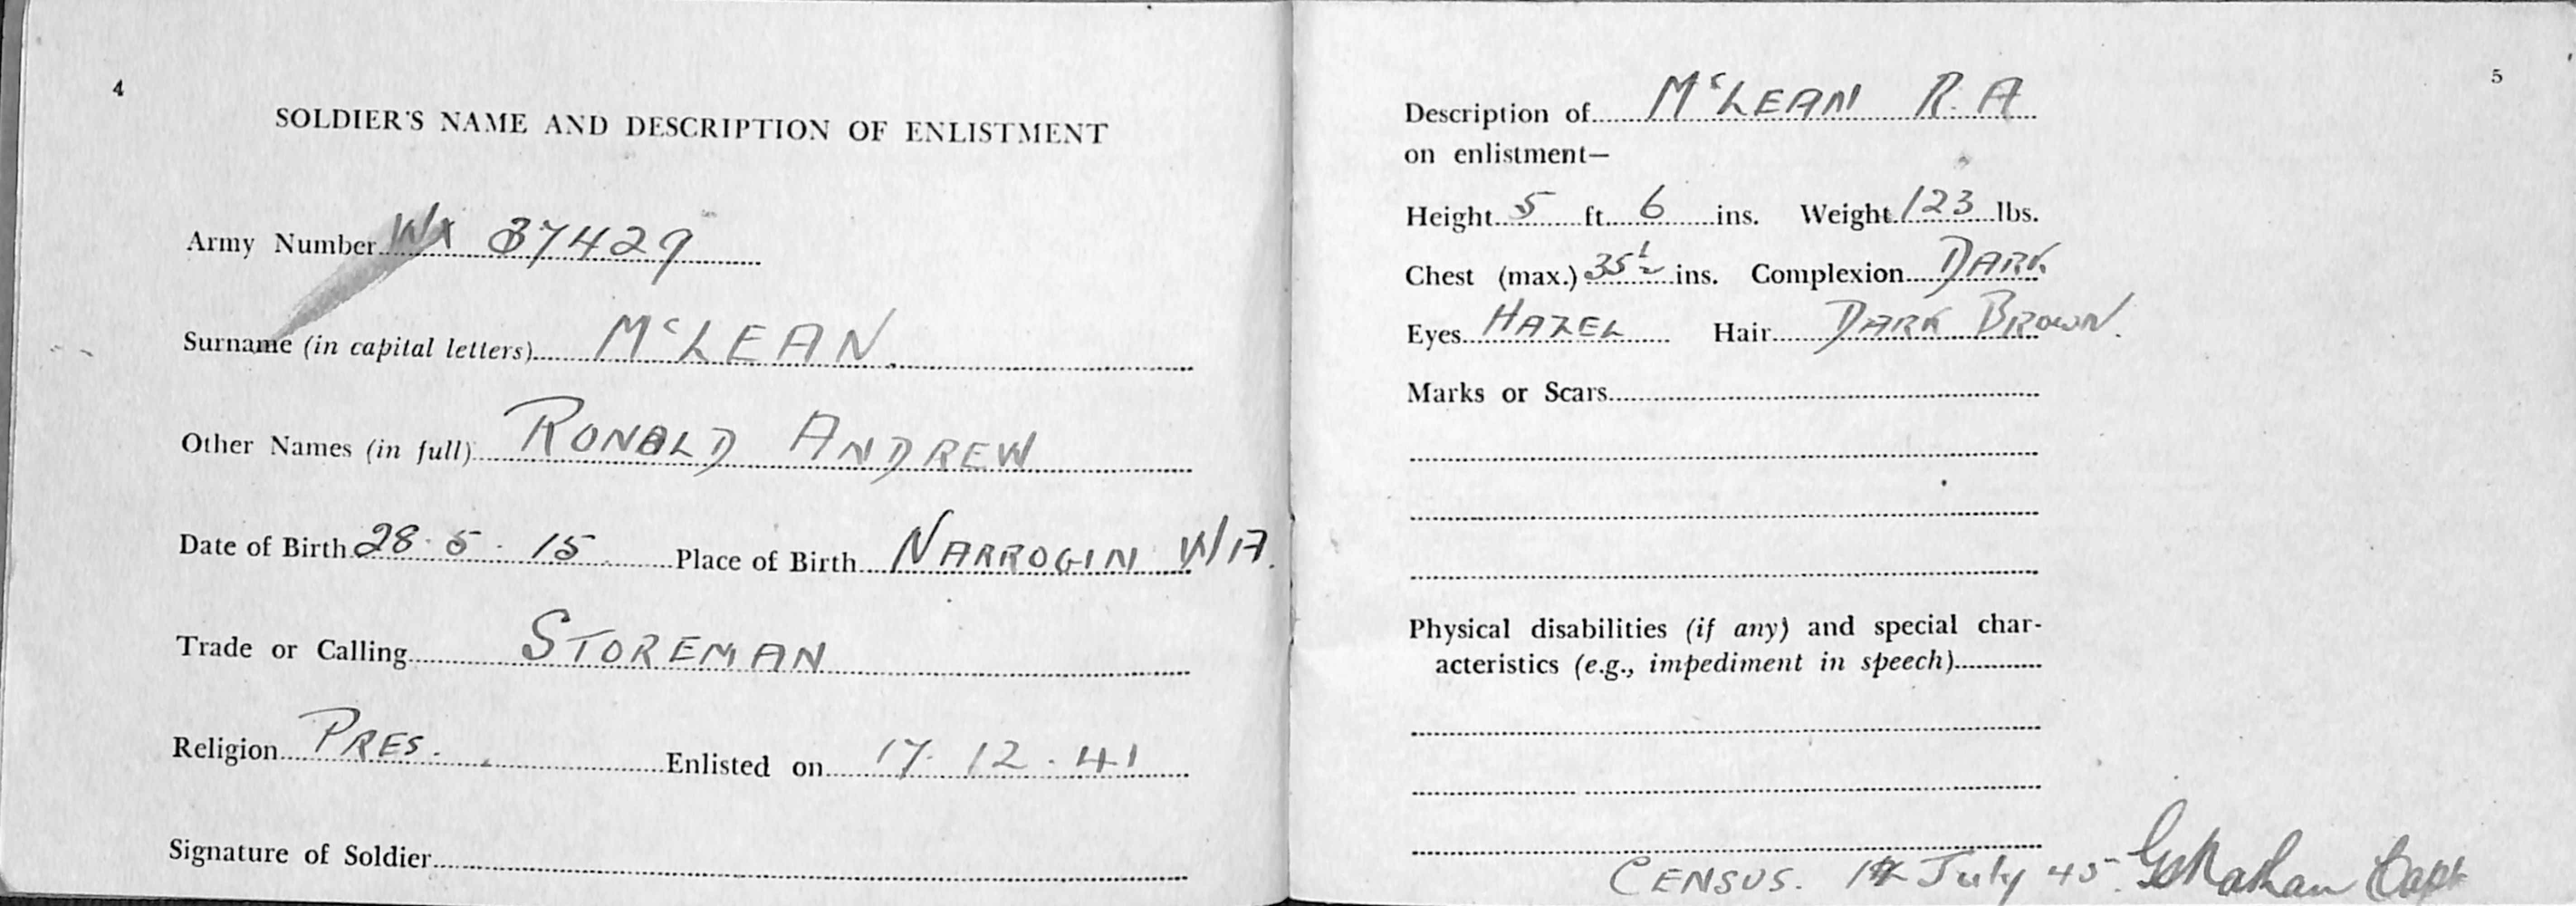 4
SOLDIER'S NAME AND DESCRIPTION OF ENLISTMENT
Army Number WX 37429
Surname (in capital letters) McLEAN
Other Names (in full) RONALD ANDREW
Date of Birth 28.5.15 Place of Birth NARROGIN W/A.
Trade or Calling STOREMAN
Religion PRES. Enlisted on 17.12.41
Signature of Soldier
5
Description of McLEAN R.A
on enlistment—
Height 5 ft. 6 ins. Weight 123 lbs.
Chest (max.) 35½ ins. Complexion DARK
Eyes HAZEL Hair DARK BROWN.
Marks or Scars
Physical disabilities (if any) and special char-
acteristics (e.g., impediment in speech)
CENSUS. July 45 Capt